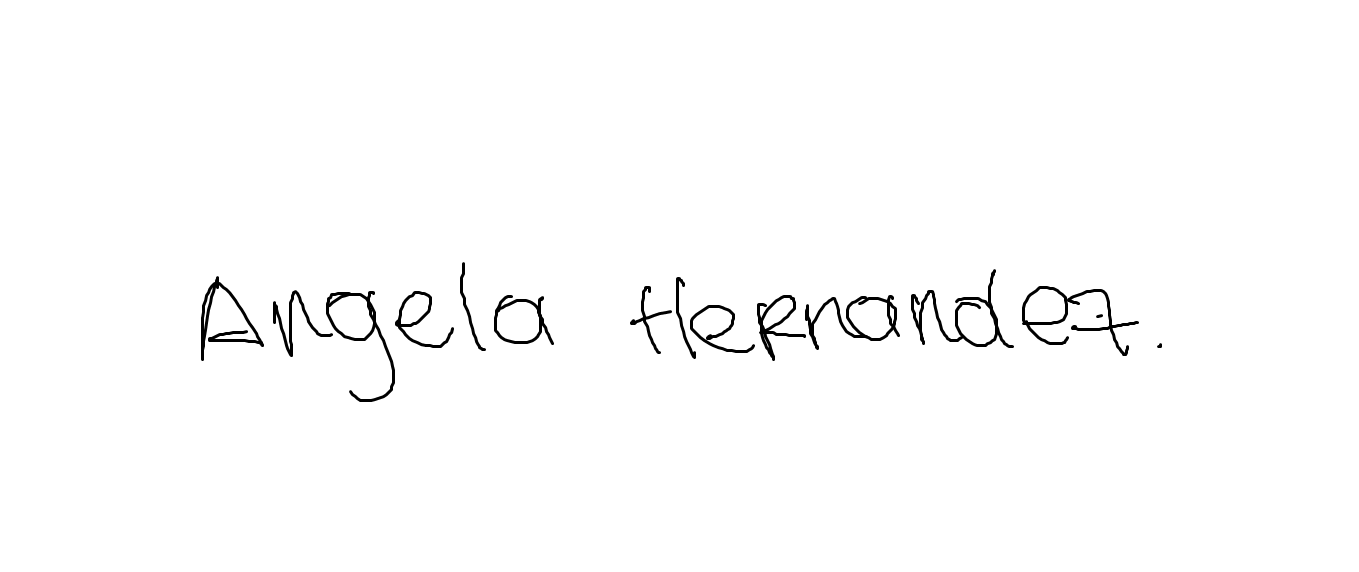 Angela Hernandez.